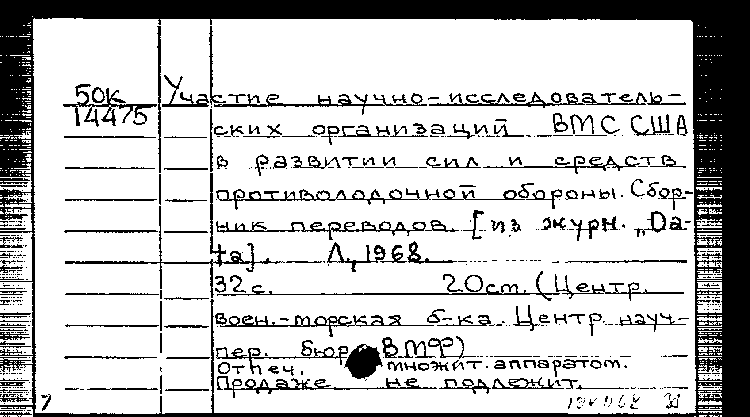 50К Участие научно-исследователь-
14475 ских организаций ВМС США
в развитии сил и средств
противолодочной обороны. Сбор-
ник переводов. [из журн. „Da-
ta]. Л., 1968.
32с. 20см. (Центр.
воен.-морская б-ка. Центр. науч-
пер. бюро ВМФ)
Отпеч. множит. аппаратом.
Продаже не подлежит.
7